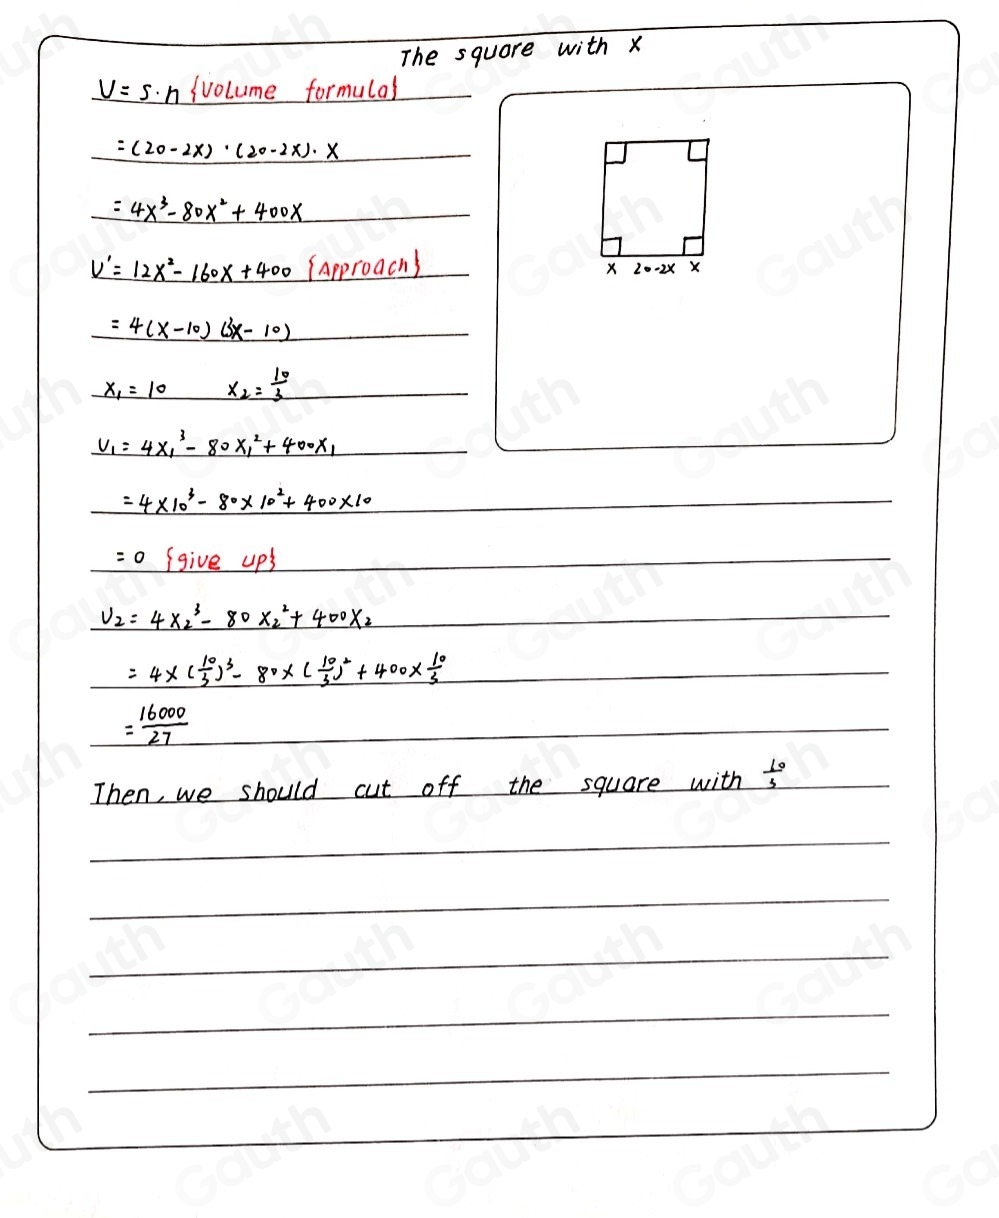 The square with x
V = s·h {volume formula}
= (20-2x)·(20-2x)·x
= 4x³-80x²+400x
V' = 12x²-160x+400 {Approach}
= 4(x-10)(3x-10)
x₁ = 10 x₂ = 10/3
V₁ = 4x₁³-80x₁²+400x₁
= 4×10³-80×10²+400×10
= 0 {give up}
V₂ = 4x₂³-80x₂²+400x₂
= 4×(10/3)³-80×(10/3)²+400×10/3
= 16000/27
Then, we should cut off the square with 10/3
x 20-2x x
Gauth